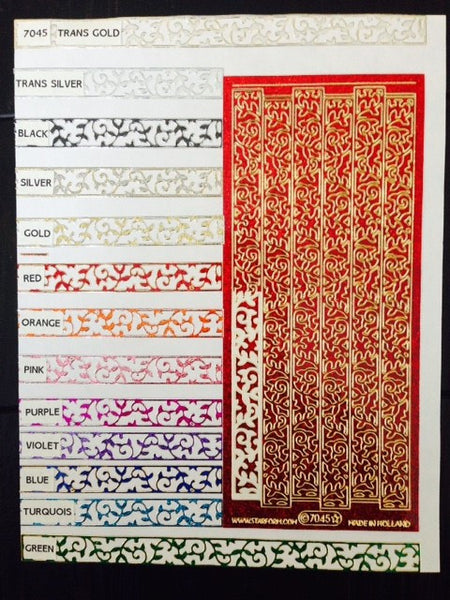 7045 TRANS GOLD
TRANS SILVER
BLACK
SILVER
GOLD
RED
ORANGE
PINK
PURPLE
VIOLET
BLUE
TURQUOIS
GREEN
WWW.STARFORM.COM ©7045☆ MADE IN HOLLAND